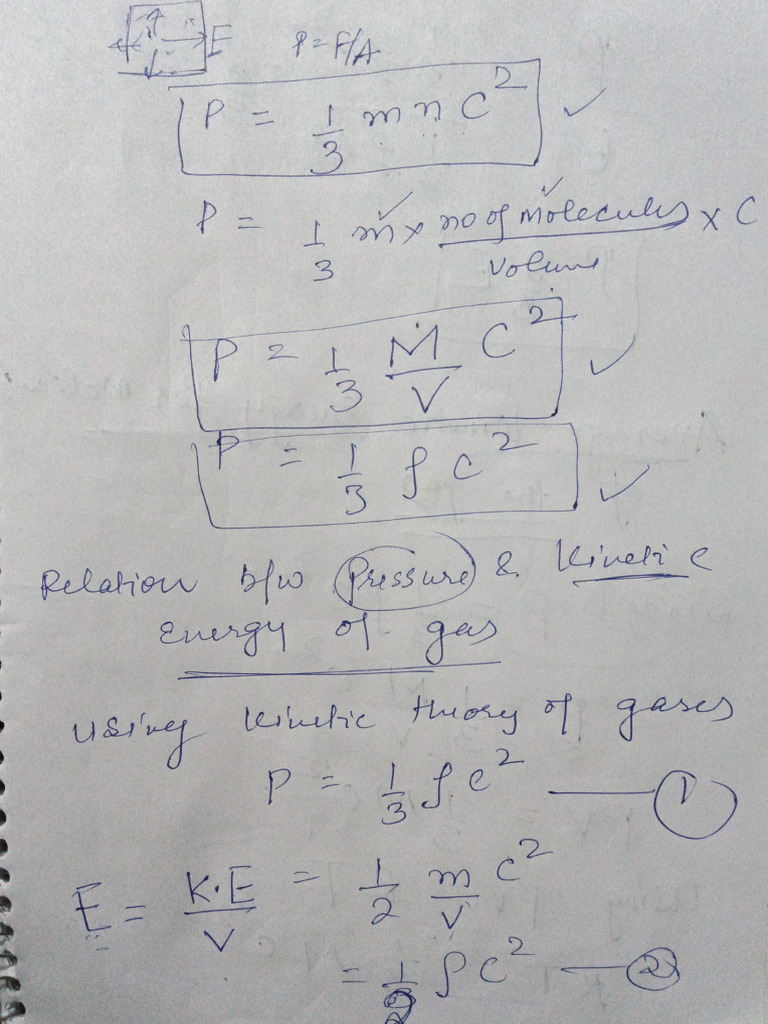 F P = F/A
P = 1/3 m n C²
P = 1/3 m × no of molecules/volume × C
P = 1/3 M/V C²
P = 1/3 ρ C²
Relation b/w Pressure & Kinetic
Energy of gas
Using kinetic theory of gases
P = 1/3 ρ c² — 1
E = K.E/V = 1/2 m/V C²
= 1/2 ρ C² — 2